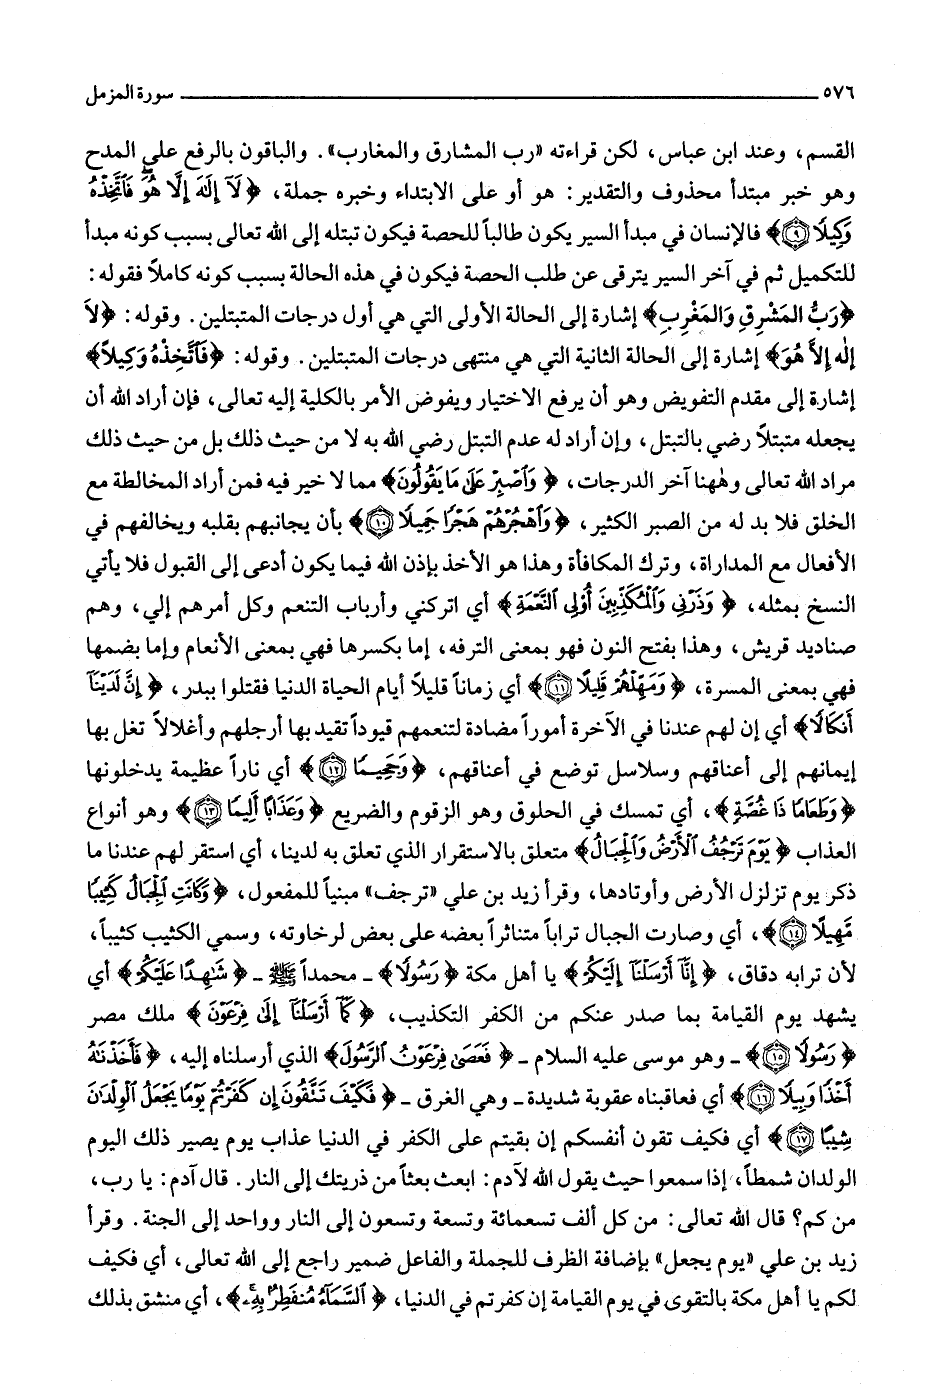 ٥٧٦ سورة المزمل
القسم، وعند ابن عباس، لكن قراءته «رب المشارق والمغارب». والباقون بالرفع على المدح
وهو خبر مبتدأ محذوف والتقدير: هو أو على الابتداء وخبره جملة، ﴿لَآ إِلَٰهَ إِلَّا هُوَ فَٱتَّخِذْهُ
وَكِيلًا ۝٩﴾ فالإنسان في مبدأ السير يكون طالباً للحصة فيكون تبتله إلى الله تعالى بسبب كونه مبدأ
للتكميل ثم في آخر السير يترقى عن طلب الحصة فيكون في هذه الحالة بسبب كونه كاملاً فقوله:
﴿رَبُّ المَشْرِقِ وَالمَغْرِبِ﴾ إشارة إلى الحالة الأولى التي هي أول درجات المتبتلين. وقوله: ﴿لاَ
إِلٰهَ إِلاَّ هُوَ﴾ إشارة إلى الحالة الثانية التي هي منتهى درجات المتبتلين. وقوله: ﴿فَٱتَّخِذْهُ وَكِيلاً﴾
إشارة إلى مقدم التفويض وهو أن يرفع الاختيار ويفوض الأمر بالكلية إليه تعالى، فإن أراد الله أن
يجعله متبتلاً رضي بالتبتل، وإن أراد له عدم التبتل رضي الله به لا من حيث ذلك بل من حيث ذلك
مراد الله تعالى وهٰهنا آخر الدرجات، ﴿وَٱصْبِرْ عَلَىٰ مَا يَقُولُونَ﴾ مما لا خير فيه فمن أراد المخالطة مع
الخلق فلا بد له من الصبر الكثير، ﴿وَٱهْجُرْهُمْ هَجْرًا جَمِيلًا ۝١٠﴾ بأن يجانبهم بقلبه ويخالفهم في
الأفعال مع المداراة، وترك المكافأة وهذا هو الأخذ بإذن الله فيما يكون أدعى إلى القبول فلا يأتي
النسخ بمثله، ﴿وَذَرْنِى وَٱلْمُكَذِّبِينَ أُو۟لِى ٱلنَّعْمَةِ﴾ أي اتركني وأرباب التنعم وكل أمرهم إلي، وهم
صناديد قريش، وهذا بفتح النون فهو بمعنى الترفه، إما بكسرها فهي بمعنى الأنعام وإما بضمها
فهي بمعنى المسرة، ﴿وَمَهِّلْهُمْ قَلِيلًا ۝١١﴾ أي زماناً قليلاً أيام الحياة الدنيا فقتلوا ببدر، ﴿إِنَّ لَدَيْنَآ
أَنكَالًا﴾ أي إن لهم عندنا في الآخرة أموراً مضادة لتنعمهم قيوداً تقيد بها أرجلهم وأغلالاً تغل بها
إيمانهم إلى أعناقهم وسلاسل توضع في أعناقهم، ﴿وَجَحِيمًا ۝١٢﴾ أي ناراً عظيمة يدخلونها
﴿وَطَعَامًا ذَا غُصَّةٍ﴾، أي تمسك في الحلوق وهو الزقوم والضريع ﴿وَعَذَابًا أَلِيمًا ۝١٣﴾ وهو أنواع
العذاب ﴿يَوْمَ تَرْجُفُ ٱلْأَرْضُ وَٱلْجِبَالُ﴾ متعلق بالاستقرار الذي تعلق به لدينا، أي استقر لهم عندنا ما
ذكر يوم تزلزل الأرض وأوتادها، وقرأ زيد بن علي «ترجف» مبنياً للمفعول، ﴿وَكَانَتِ ٱلْجِبَالُ كَثِيبًا
مَّهِيلًا ۝١٤﴾، أي وصارت الجبال تراباً متناثراً بعضه على بعض لرخاوته، وسمي الكثيب كثيباً،
لأن ترابه دقاق، ﴿إِنَّآ أَرْسَلْنَآ إِلَيْكُمْ﴾ يا أهل مكة ﴿رَسُولًا﴾ - محمداً ﷺ - ﴿شَٰهِدًا عَلَيْكُمْ﴾ أي
يشهد يوم القيامة بما صدر عنكم من الكفر التكذيب، ﴿كَمَآ أَرْسَلْنَآ إِلَىٰ فِرْعَوْنَ﴾ ملك مصر
﴿رَسُولًا ۝١٥﴾ - وهو موسى عليه السلام - ﴿فَعَصَىٰ فِرْعَوْنُ ٱلرَّسُولَ﴾ الذي أرسلناه إليه، ﴿فَأَخَذْنَٰهُ
أَخْذًا وَبِيلًا ۝١٦﴾ أي فعاقبناه عقوبة شديدة - وهي الغرق - ﴿فَكَيْفَ تَتَّقُونَ إِن كَفَرْتُمْ يَوْمًا يَجْعَلُ ٱلْوِلْدَٰنَ
شِيبًا ۝١٧﴾ أي فكيف تقون أنفسكم إن بقيتم على الكفر في الدنيا عذاب يوم يصير ذلك اليوم
الولدان شمطاً، إذا سمعوا حيث يقول الله لآدم: ابعث بعثاً من ذريتك إلى النار. قال آدم: يا رب،
من كم؟ قال الله تعالى: من كل ألف تسعمائة وتسعة وتسعون إلى النار وواحد إلى الجنة. وقرأ
زيد بن علي «يوم يجعل» بإضافة الظرف للجملة والفاعل ضمير راجع إلى الله تعالى، أي فكيف
لكم يا أهل مكة بالتقوى في يوم القيامة إن كفرتم في الدنيا، ﴿ٱلسَّمَآءُ مُنفَطِرٌۢ بِهِۦ﴾، أي منشق بذلك